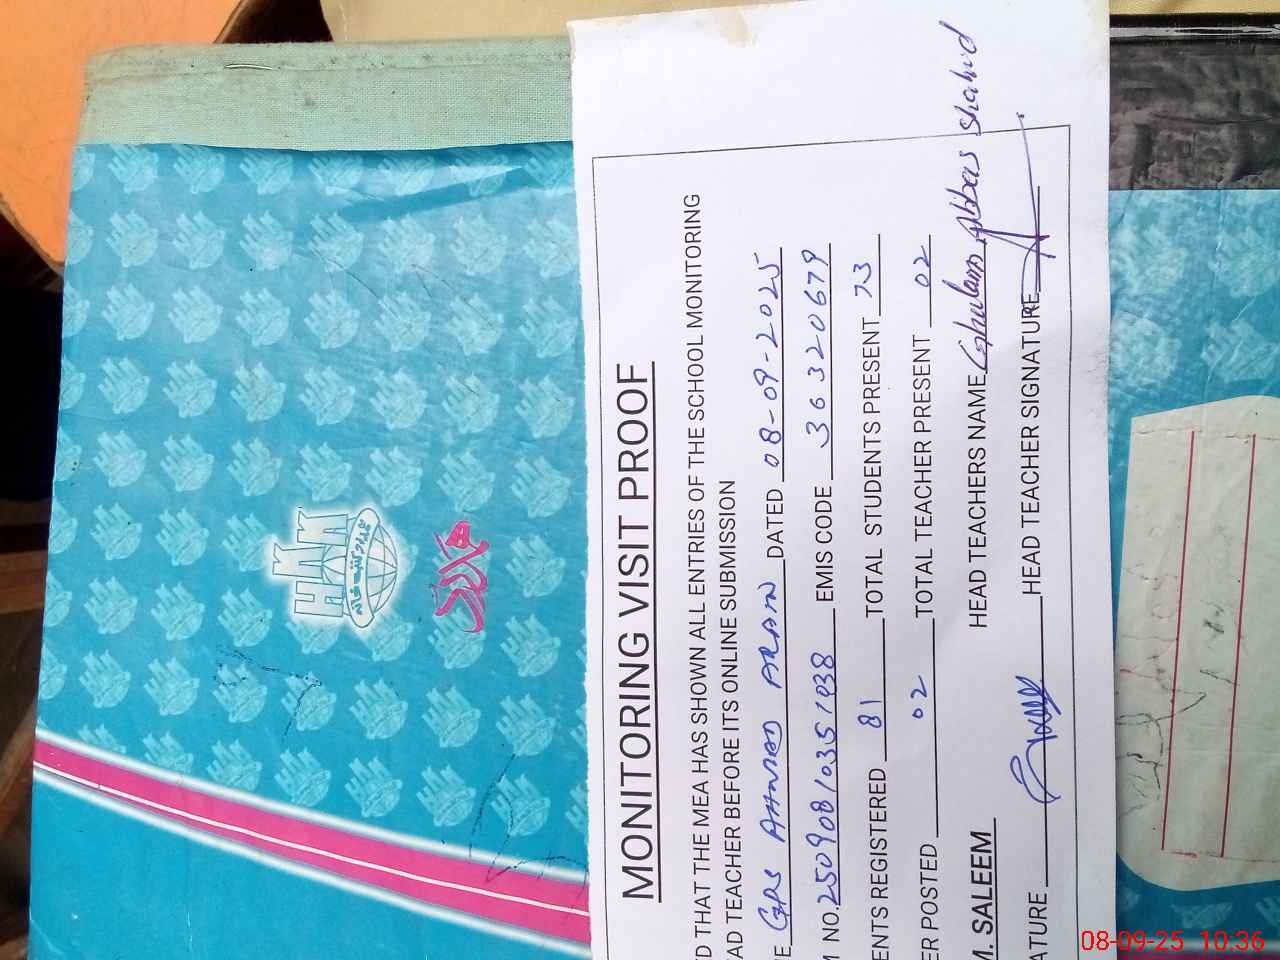 MONITORING VISIT PROOF
D THAT THE MEA HAS SHOWN ALL ENTRIES OF THE SCHOOL MONITORING
AD TEACHER BEFORE ITS ONLINE SUBMISSION
E GPS AHMAD ARAIN DATED 08-09-2025
NO. 2509081035 1038 EMIS CODE 36320679
ENTS REGISTERED 81 TOTAL STUDENTS PRESENT 73
ER POSTED 02 TOTAL TEACHER PRESENT 02
M. SALEEM HEAD TEACHERS NAME Ghulam Abbas Shahid
ATURE HEAD TEACHER SIGNATURE
08-09-25 10:36